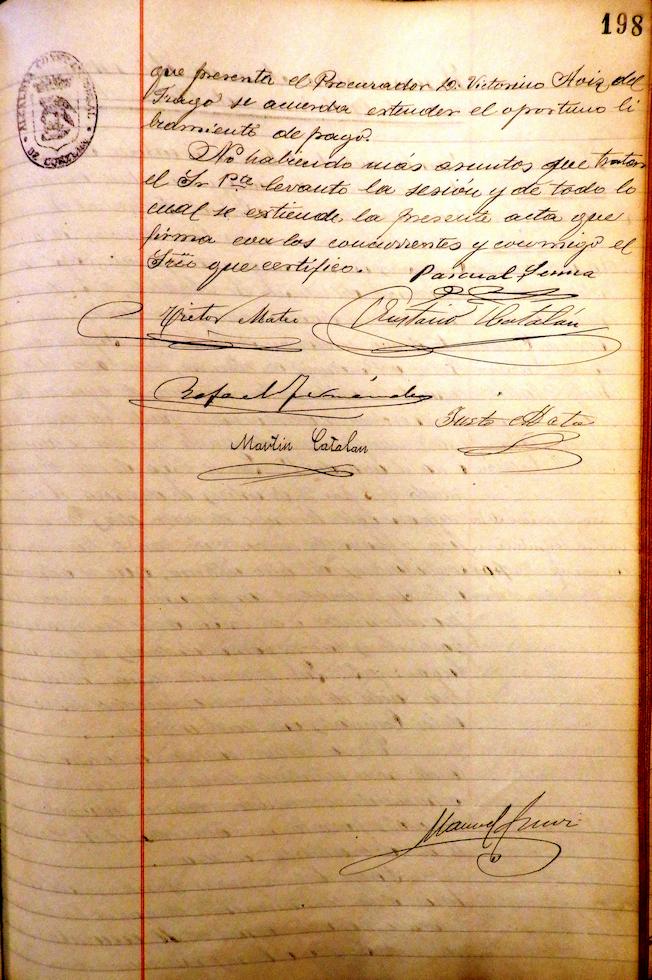 198
ALCALDIA CONSTITUCIONAL
DE CORELLA
que presenta el Procurador D. Victorino Aoiz del
Frago se acuerda extender el oportuno li
bramiento de pago.
No habiendo más asuntos que tratar
el Sr Pte levantó la sesión y de todo lo
cual se extiende la presente acta que
firma con los concurrentes y conmigo el
Srio que certifico.
Pascual
Victor Mateo
Catalán
Rafael Fernández
Justo Mata
Martin Catalan
Manuel